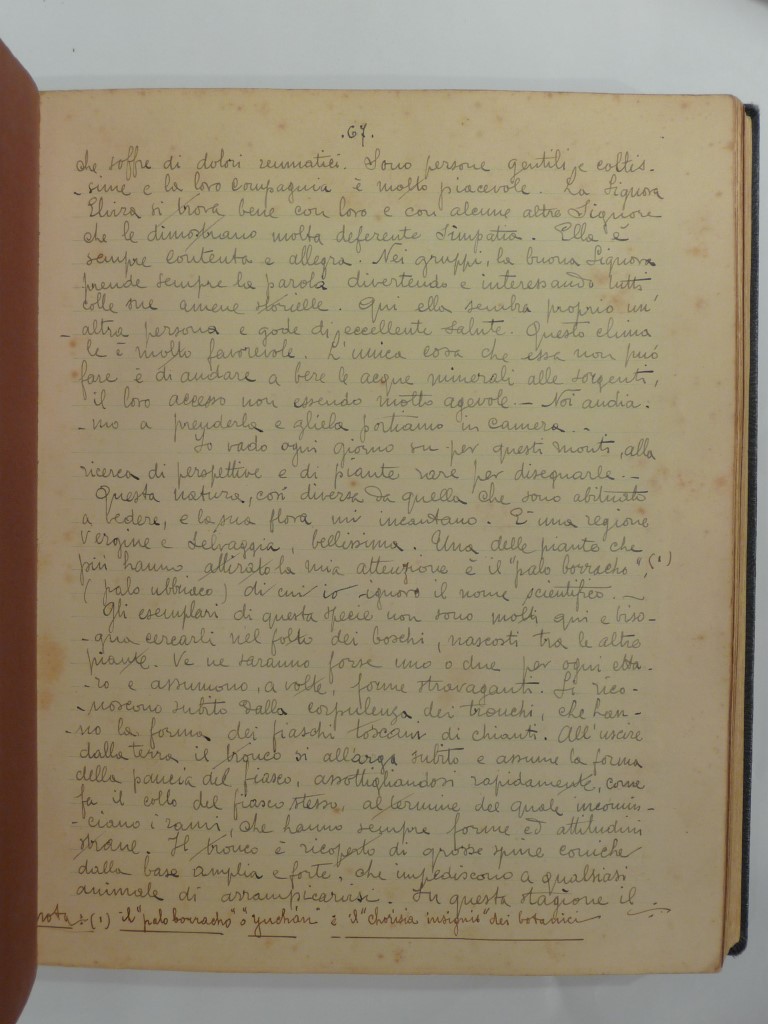 .67.
che soffre di dolori reumatici. Sono persone gentili e coltis-
-sime e la loro compagnia è molto piacevole. La Signora
Elvira si trova bene con loro e con alcune altre Signore
che le dimostrano molta deferente simpatia. Ella è
sempre contenta e allegra. Nei gruppi, la buona Signora
prende sempre la parola divertendo e interessando tutti
colle sue amene storielle. Qui ella sembra proprio un'
-altra persona e gode di eccellente salute. Questo clima
le è molto favorevole. L'unica cosa che essa non può
fare è di andare a bere le acque minerali alle sorgenti,
il loro accesso non essendo molto agevole. - Noi andia-
-mo a prenderla e gliela portiamo in camera. -
Io vado ogni giorno su per questi monti, alla
ricerca di perspettive e di piante rare per disegnarle. -
Questa natura, così diversa da quella che sono abituato
a vedere, e la sua flora, mi incantano. È una regione
vergine e selvaggia, bellissima. Una delle piante che
più hanno attirato la mia attenzione è il "palo borracho", (1)
(palo ubbriaco) di cui io ignoro il nome scientifico. -
Gli esemplari di questa specie non sono molti qui e biso-
-gna cercarli nel folto dei boschi, nascosti tra le altre
piante. Ve ne saranno forse uno o due per ogni etta-
-ro e assumono, a volte, forme stravaganti. Si rico-
-noscono subito dalla corpulenza dei tronchi, che han-
-no la forma dei fiaschi toscani di chianti. All'uscire
dalla terra il tronco si allarga subito e assume la forma
della pancia del fiasco, assottigliandosi rapidamente, come
fa il collo del fiasco stesso, al termine del quale incomin-
-ciano i rami, che hanno sempre forme ed attitudini
strane. Il tronco è ricoperto di grosse spine coniche
dalla base amplia e forte, che impediscono a qualsiasi
animale di arrampicarvisi. In questa stagione il
nota: (1) il "palo borracho" o "yuchán" è il "chorisia insignis" dei botanici